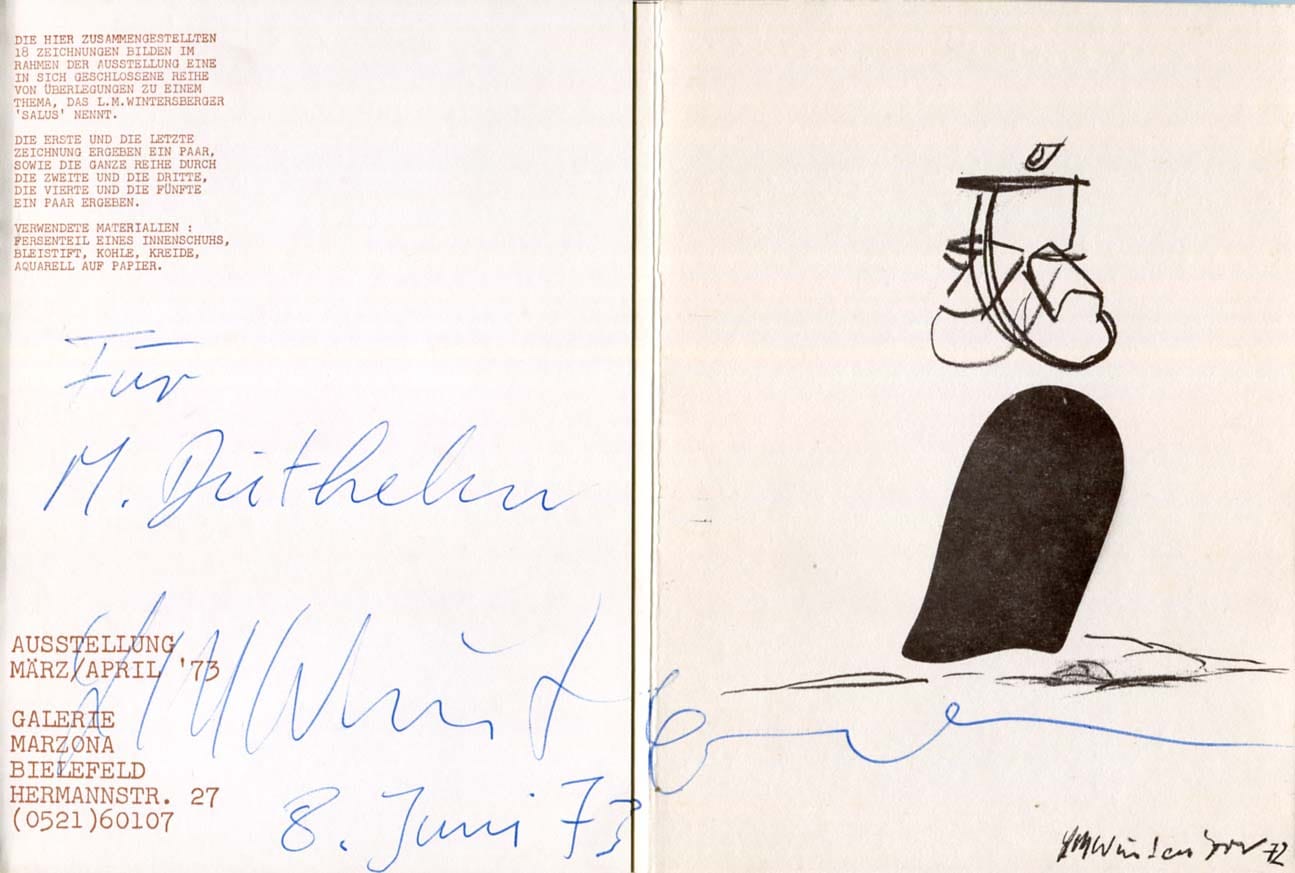 DIE HIER ZUSAMMENGESTELLTEN
18 ZEICHNUNGEN BILDEN IM
RAHMEN DER AUSSTELLUNG EINE
IN SICH GESCHLOSSENE REIHE
VON ÜBERLEGUNGEN ZU EINEM
THEMA, DAS L.M.WINTERSBERGER
'SALUS' NENNT.
DIE ERSTE UND DIE LETZTE
ZEICHNUNG ERGEBEN EIN PAAR,
SOWIE DIE GANZE REIHE DURCH
DIE ZWEITE UND DIE DRITTE,
DIE VIERTE UND DIE FÜNFTE
EIN PAAR ERGEBEN.
VERWENDETE MATERIALIEN :
FERSENTEIL EINES INNENSCHUHS,
BLEISTIFT, KOHLE, KREIDE,
AQUARELL AUF PAPIER.
Für
M.
AUSSTELLUNG
MÄRZ/APRIL '73
GALERIE
MARZONA
BIELEFELD
HERMANNSTR. 27
(0521)60107
8. Juni 73
72